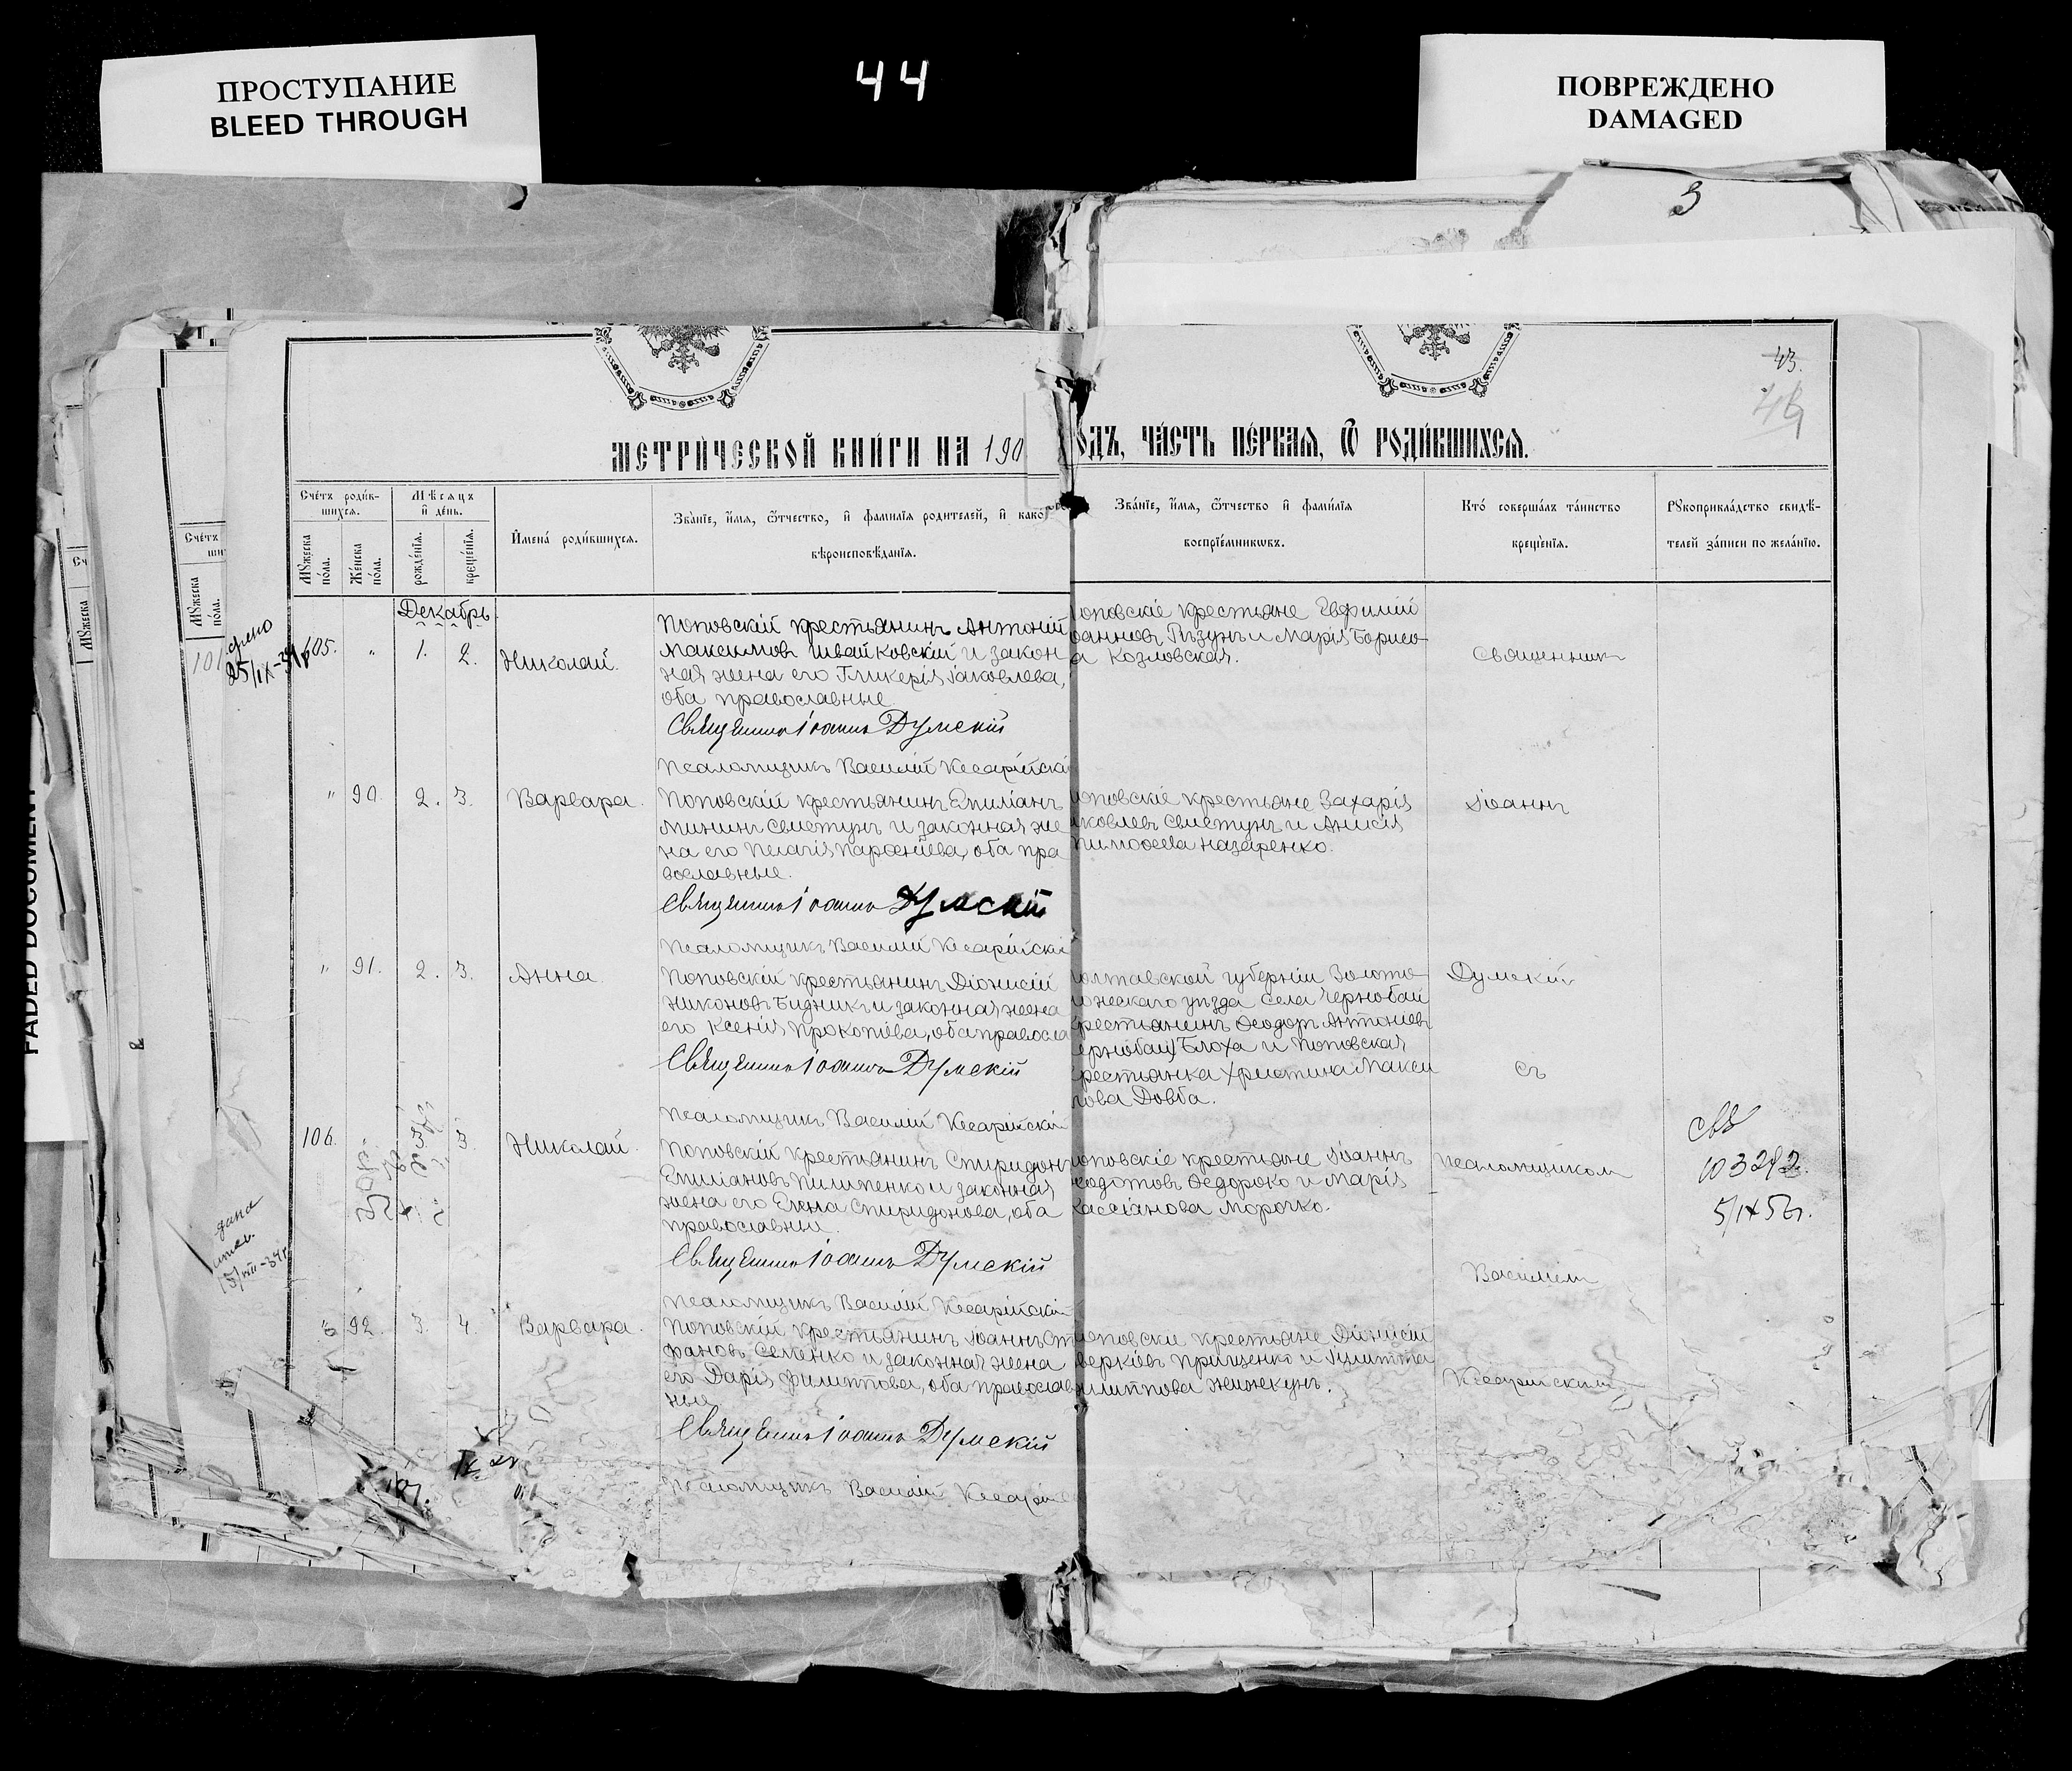 ПРОСТУПАНИЕ
BLEED THROUGH
44
ПОВРЕЖДЕНО
DAMAGED
3
43.
МЕТРИ́ЧЕСКОЙ КНИ́ГИ НА 190
ОДЪ, ЧА́СТЬ ПЕ́РВАЯ, Ѿ РОДИ́ВШИХСЯ.
Сче́тъ роди́в-
шихся.
Мѣсяцъ
и де́нь.
Мꙋжеска
по́ла.
Же́нска
по́ла.
рожде́нїя.
креще́нїя.
Имена́ роди́вшихся.
Зва́нїе, и́мя, ѻ́тчество, и фами́лїя родителей, и како
вѣроисповѣ́данїя.
Зва́нїе, и́мя, ѻ́тчество и фами́лїя
воспрїе́мникѡвъ.
Кто́ соверша́лъ та́инство
креще́нїя.
Рꙋкоприкла́дство свидѣ́-
телей за́писи по жела́нїю.
Декабрь.
105. " 1. 2. Николай.
Поповскій крестьянинъ Антоній
Максимовъ Швайковскій и закон
ная жена его Гликерія Іаковлева,
оба православные
Священникъ Іоаннъ Думскій
Псаломщикъ Василій Кесарійскі
оповскіе крестьяне Евфимій
оанновъ Пъзунъ и Марія Борисо-
а Козловская.
Священникъ
" 90. 2. 3. Варвара.
Поповскій крестьянинъ Емиліанъ
Мининъ Свистунъ и законная же
на его Пелагія Парѳеніева, оба пра
вославные.
Священникъ Іоаннъ Думскій
Псаломщикъ Василій Кесарійскі
оповскіе крестьяне Захарія
яковлевъ Свистунъ и Анисія
Тимоѳеева Назаренко.
Іоаннъ
" 91. 2. 3. Анна.
Поповскій крестьянинъ Діонисій
Никоновъ Бидникъ и законная жена
его Ксенія Прокопіева, оба правосла
Священникъ Іоаннъ Думскій
Псаломщикъ Василій Кесарійскій
олтавской губерніи Золото-
ношескаго уѣзда села Чернобай
крестьянинъ Ѳеодоръ Антоніевъ
ернобай) Блоха и Поповская
крестьянка Христина Макси
мова Довба.
Думскій
съ
106. " 3. Николай.
Поповскій крестьянинъ Спиридонъ
Емиліановъ Пилипенко и законная
жена его Елена Спиридонова, оба
православные.
Священникъ Іоаннъ Думскій
Псаломщикъ Василій Кесарійскій
оповскіе крестьяне Іоаннъ
еодотовъ Ѳедороко и Марія
Кассіанова Морочко.
Псаломщикомъ
103292.
Василіемъ
" 92. 3. 4. Варвара.
Поповскій крестьянинъ Іоаннъ Сте
фановъ Семенко и законная жена
его Дарія Филиппова, оба православ
ные
Священникъ Іоаннъ Думскій
Псаломщикъ Василій Кесарій
оповскіе крестьяне Діонисій
веркіевъ Прищенко и Іулитта
илиппова Жижекунъ.
Кесарійскимъ
107.
FADED DOCUMENT